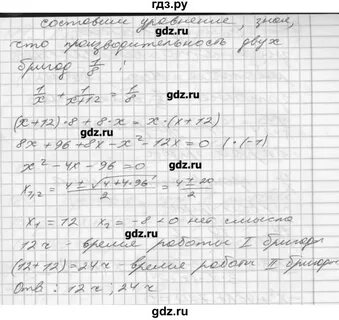 гдз.ру
составим уравнение, зная,
что производительность двух
бригад 1/8 !
1/x + 1/(x+12) = 1/8
(x+12)·8 + 8·x = x·(x+12)
8x + 96 + 8x - x² - 12x = 0 (·(-1)
x² - 4x - 96 = 0
x₁,₂ = (4 ± √(4+4·96))/2 = (4 ± 20)/2
x₁ = 12 x₂ = -8 < 0 нет смысла
12 ч - время работы I бригады
(12+12) = 24 ч - время работы II бригады
Отв: 12 ч; 24 ч
gdz.ru